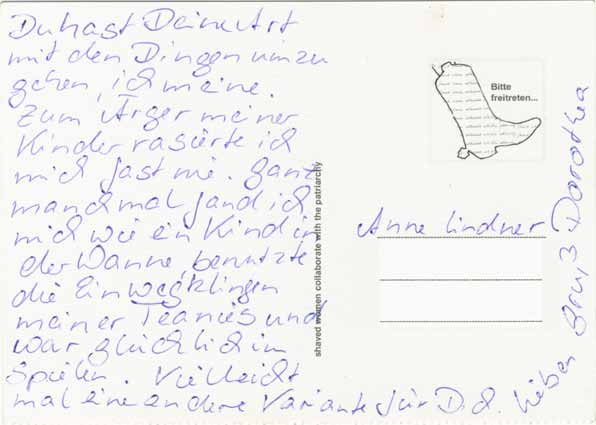 Du hast Deine Art
mit den Dingen umzu
gehen, ich meine.
Zum Ärger meiner
Kinder rasierte ich
mich fast nie. Ganz
manchmal fand ich
mich wie ein Kind in
der Wanne, benutzte
die Einwegklingen
meiner Teanies und
war glücklich im
Spielen. Vielleicht
mal eine andere Variante für Dich. Lieben
Gruß Dorothea
shaved women collaborate with the patriarchy
Bitte
freitreten...
Anne Lindner